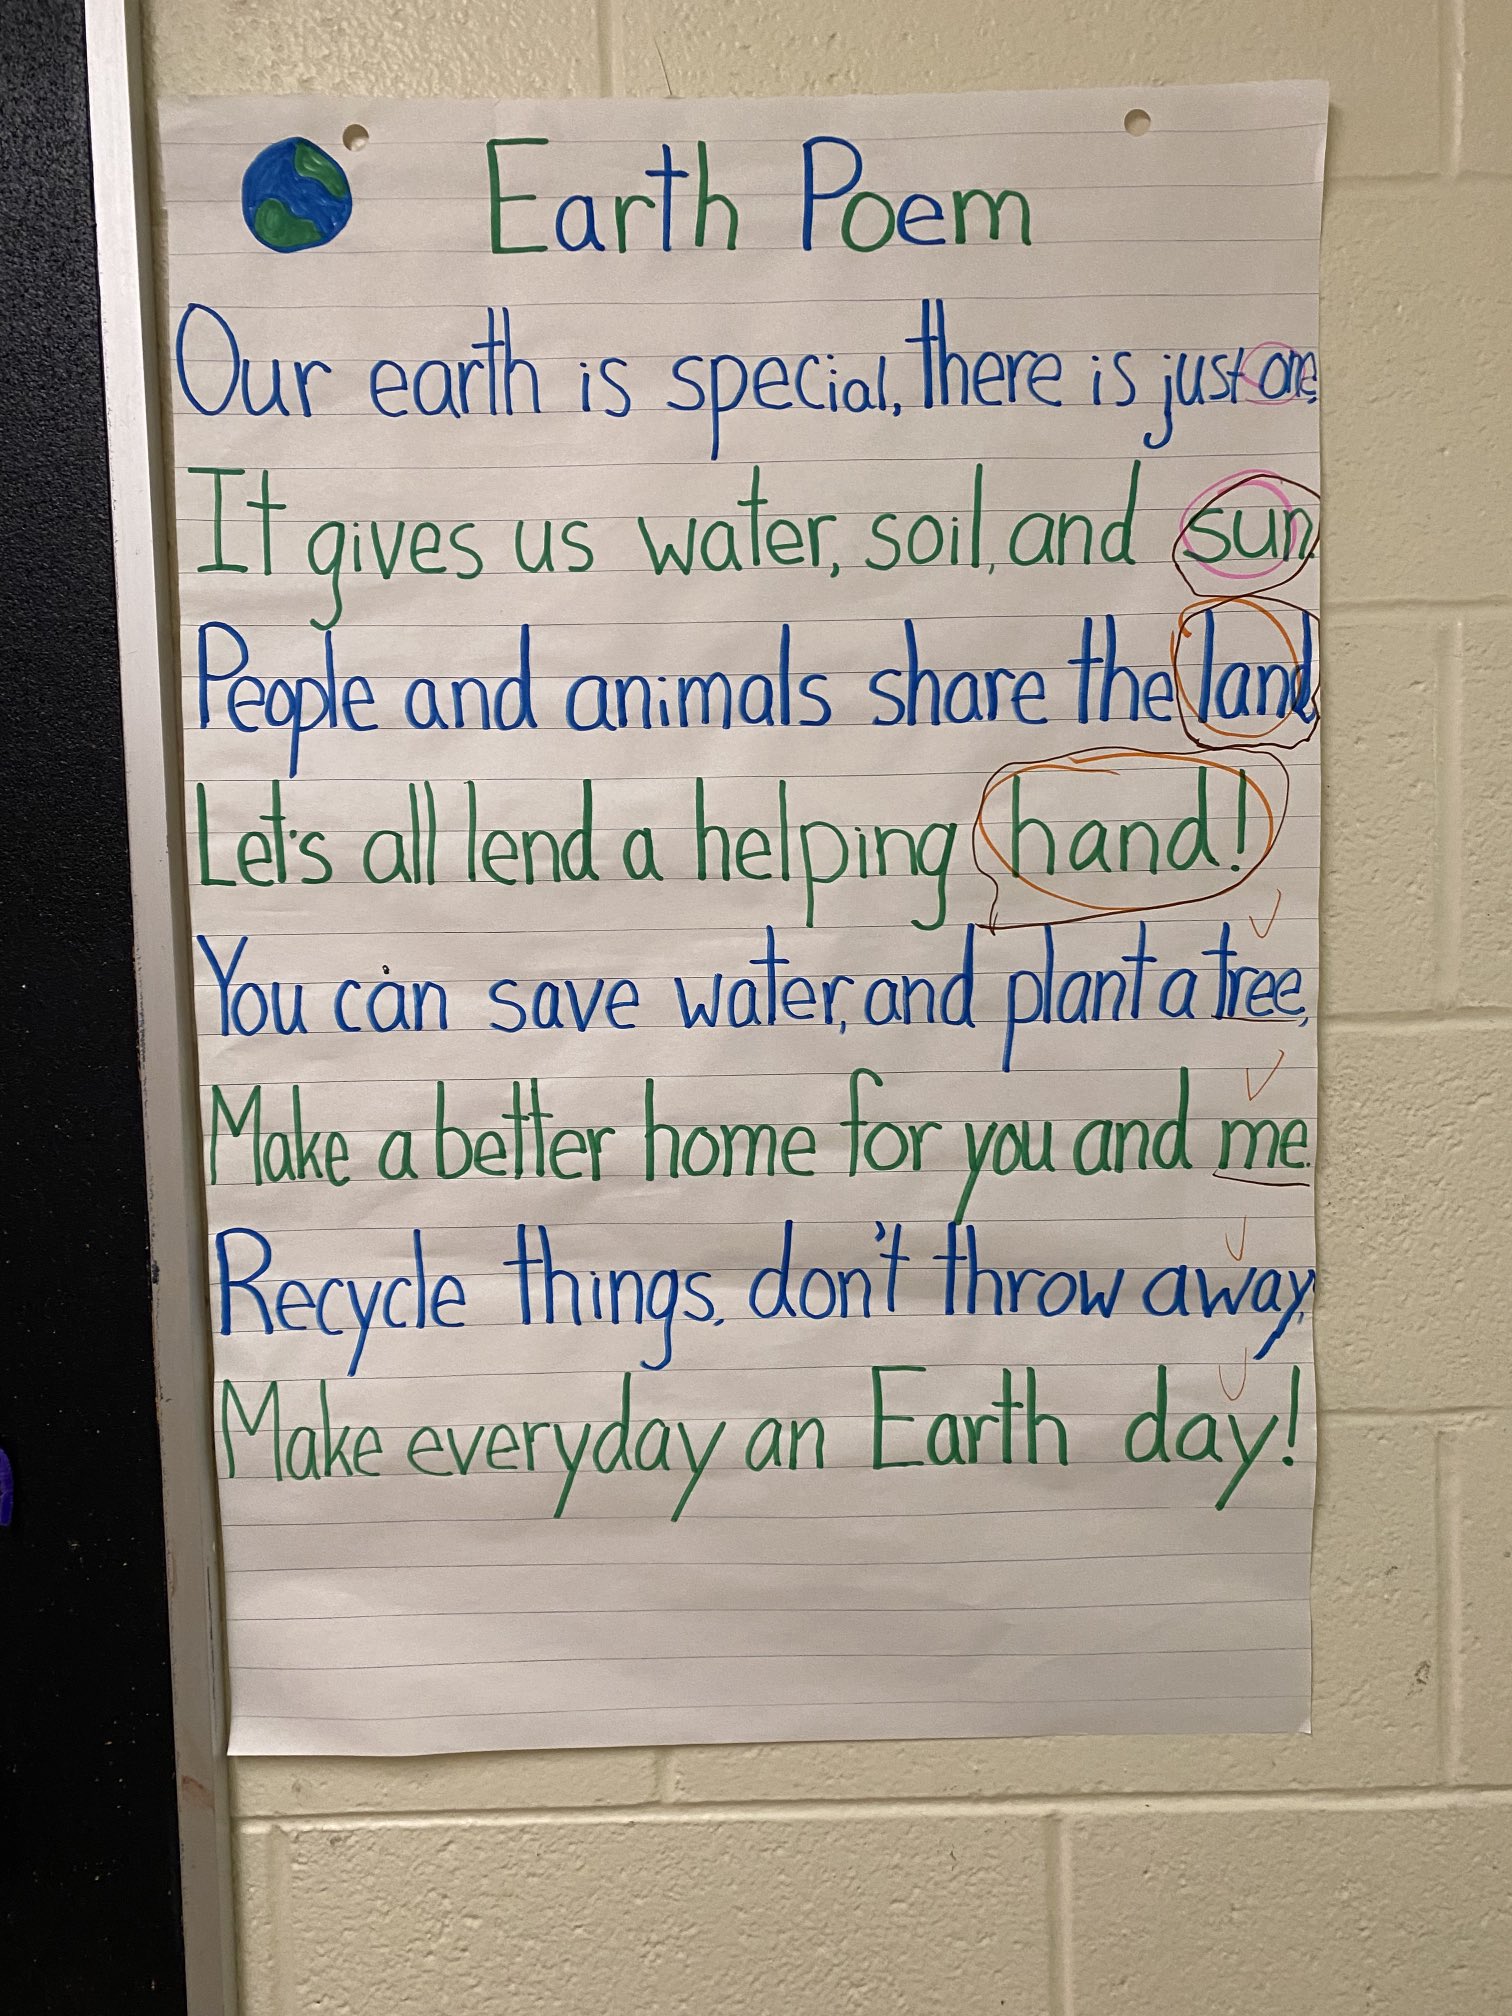 Earth Poem
Our earth is special, there is just one,
It gives us water, soil, and sun.
People and animals share the land,
Let's all lend a helping hand!
You can save water, and plant a tree,
Make a better home for you and me.
Recycle things, don't throw away,
Make everyday an Earth day!